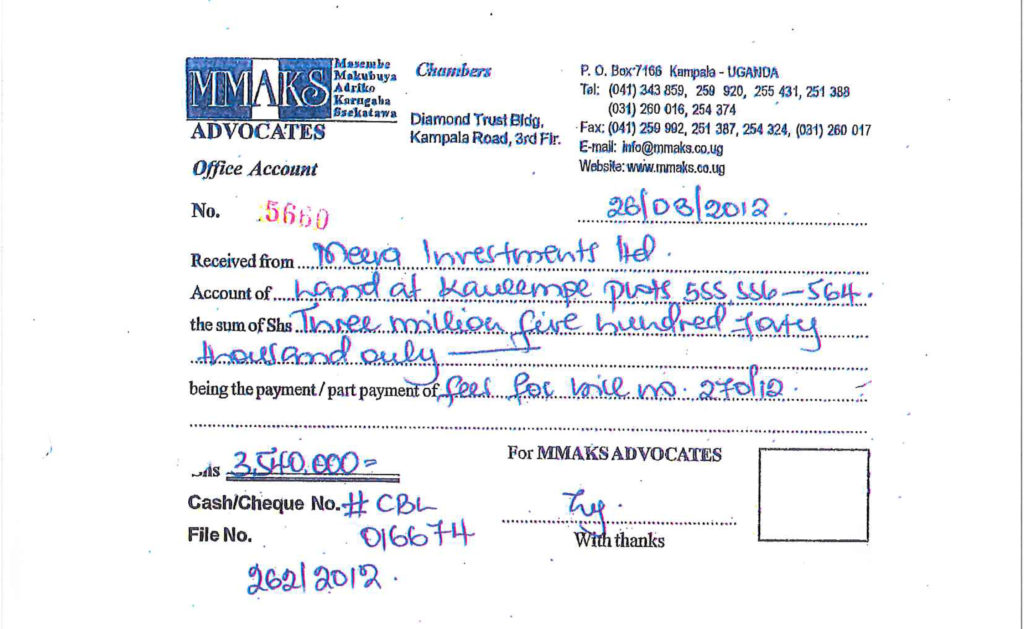 MMAKS
Masembe
Makubuya
Adriko
Karugaba
Ssekatawa
ADVOCATES
Office Account
Chambers
Diamond Trust Bldg,
Kampala Road, 3rd Flr.
P. O. Box 7166 Kampala - UGANDA
Tel: (041) 343 859, 259 920, 255 431, 251 388
(031) 260 016, 254 374
Fax: (041) 259 992, 251 387, 254 324, (031) 260 017
E-mail: info@mmaks.co.ug
Website: www.mmaks.co.ug
No. 5660
28/03/2012.
Received from Meera Investments Ltd.
Account of Land at Kawempe plots 555, 556-564.
the sum of Shs Three million five hundred forty
thousand only
being the payment / part payment of fees for bill no. 270/12.
3,540,000=
For MMAKS ADVOCATES
Cash/Cheque No. # CBL
016674
File No.
With thanks
262/2012.